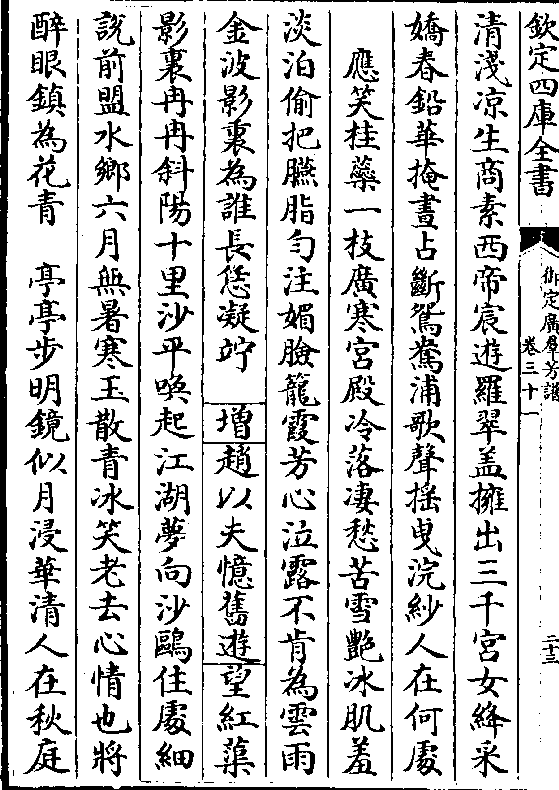 欽定四庫全書
御定廣羣芳譜
卷三十一
二十三
清淺凉生商素西帝宸遊羅翠盖擁出三千宮女絳采
嬌春鉛華掩晝占斷鴛鴦浦歌聲揺曳浣紗人在何處
應笑桂蘂一枝廣寒宮殿冷落凄愁苦雪艷冰肌羞
淡泊偷把臙脂勻注媚臉籠霞芳心泣露不肯為雲雨
金波影裏為誰長恁凝竚　增趙以夫憶舊遊望紅蕖
影裏冉冉斜陽十里沙平喚起江湖夢向沙鷗住處細
說前盟水鄉六月無暑寒玉散青冰笑老去心情也將
醉眼鎮為花青　亭亭步明鏡似月浸華清人在秋庭